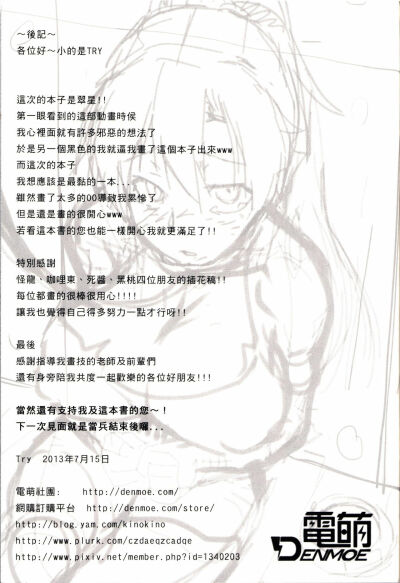 ～後記～
各位好～小的是TRY
這次的本子是翠星!!
第一眼看到的這部動畫時侯
我心裡面就有許多邪惡的想法了
於是另一個黑色的我就逼我畫了這個本子出來www
而這次的本子
我想應該是最黏的一本...
雖然畫了太多的OO導致我累慘了
但是還是畫的很開心www
若看這本書的您也能一樣開心我就更滿足了!!
特別感謝
怪龍、咖哩東、死醬、黑桃四位朋友的插花稿!!
每位都畫的很棒很用心!!!!
讓我也覺得自己得多努力一點才行呀!!
最後
感謝指導我畫技的老師及前輩們
還有身旁陪我共度一起歡樂的各位好朋友!!!
當然還有支持我及這本書的您～！
下一次見面就是當兵結束後囉...
Try 2013年7月15日
電萌社團: http://denmoe.com/
網購訂購平台 http://denmoe.com/store/
http://blog.yam.com/kinokino
http://www.plurk.com/czdaeqzcadqe
http://www.pixiv.net/member.php?id=1340203
電萌
DENMOE